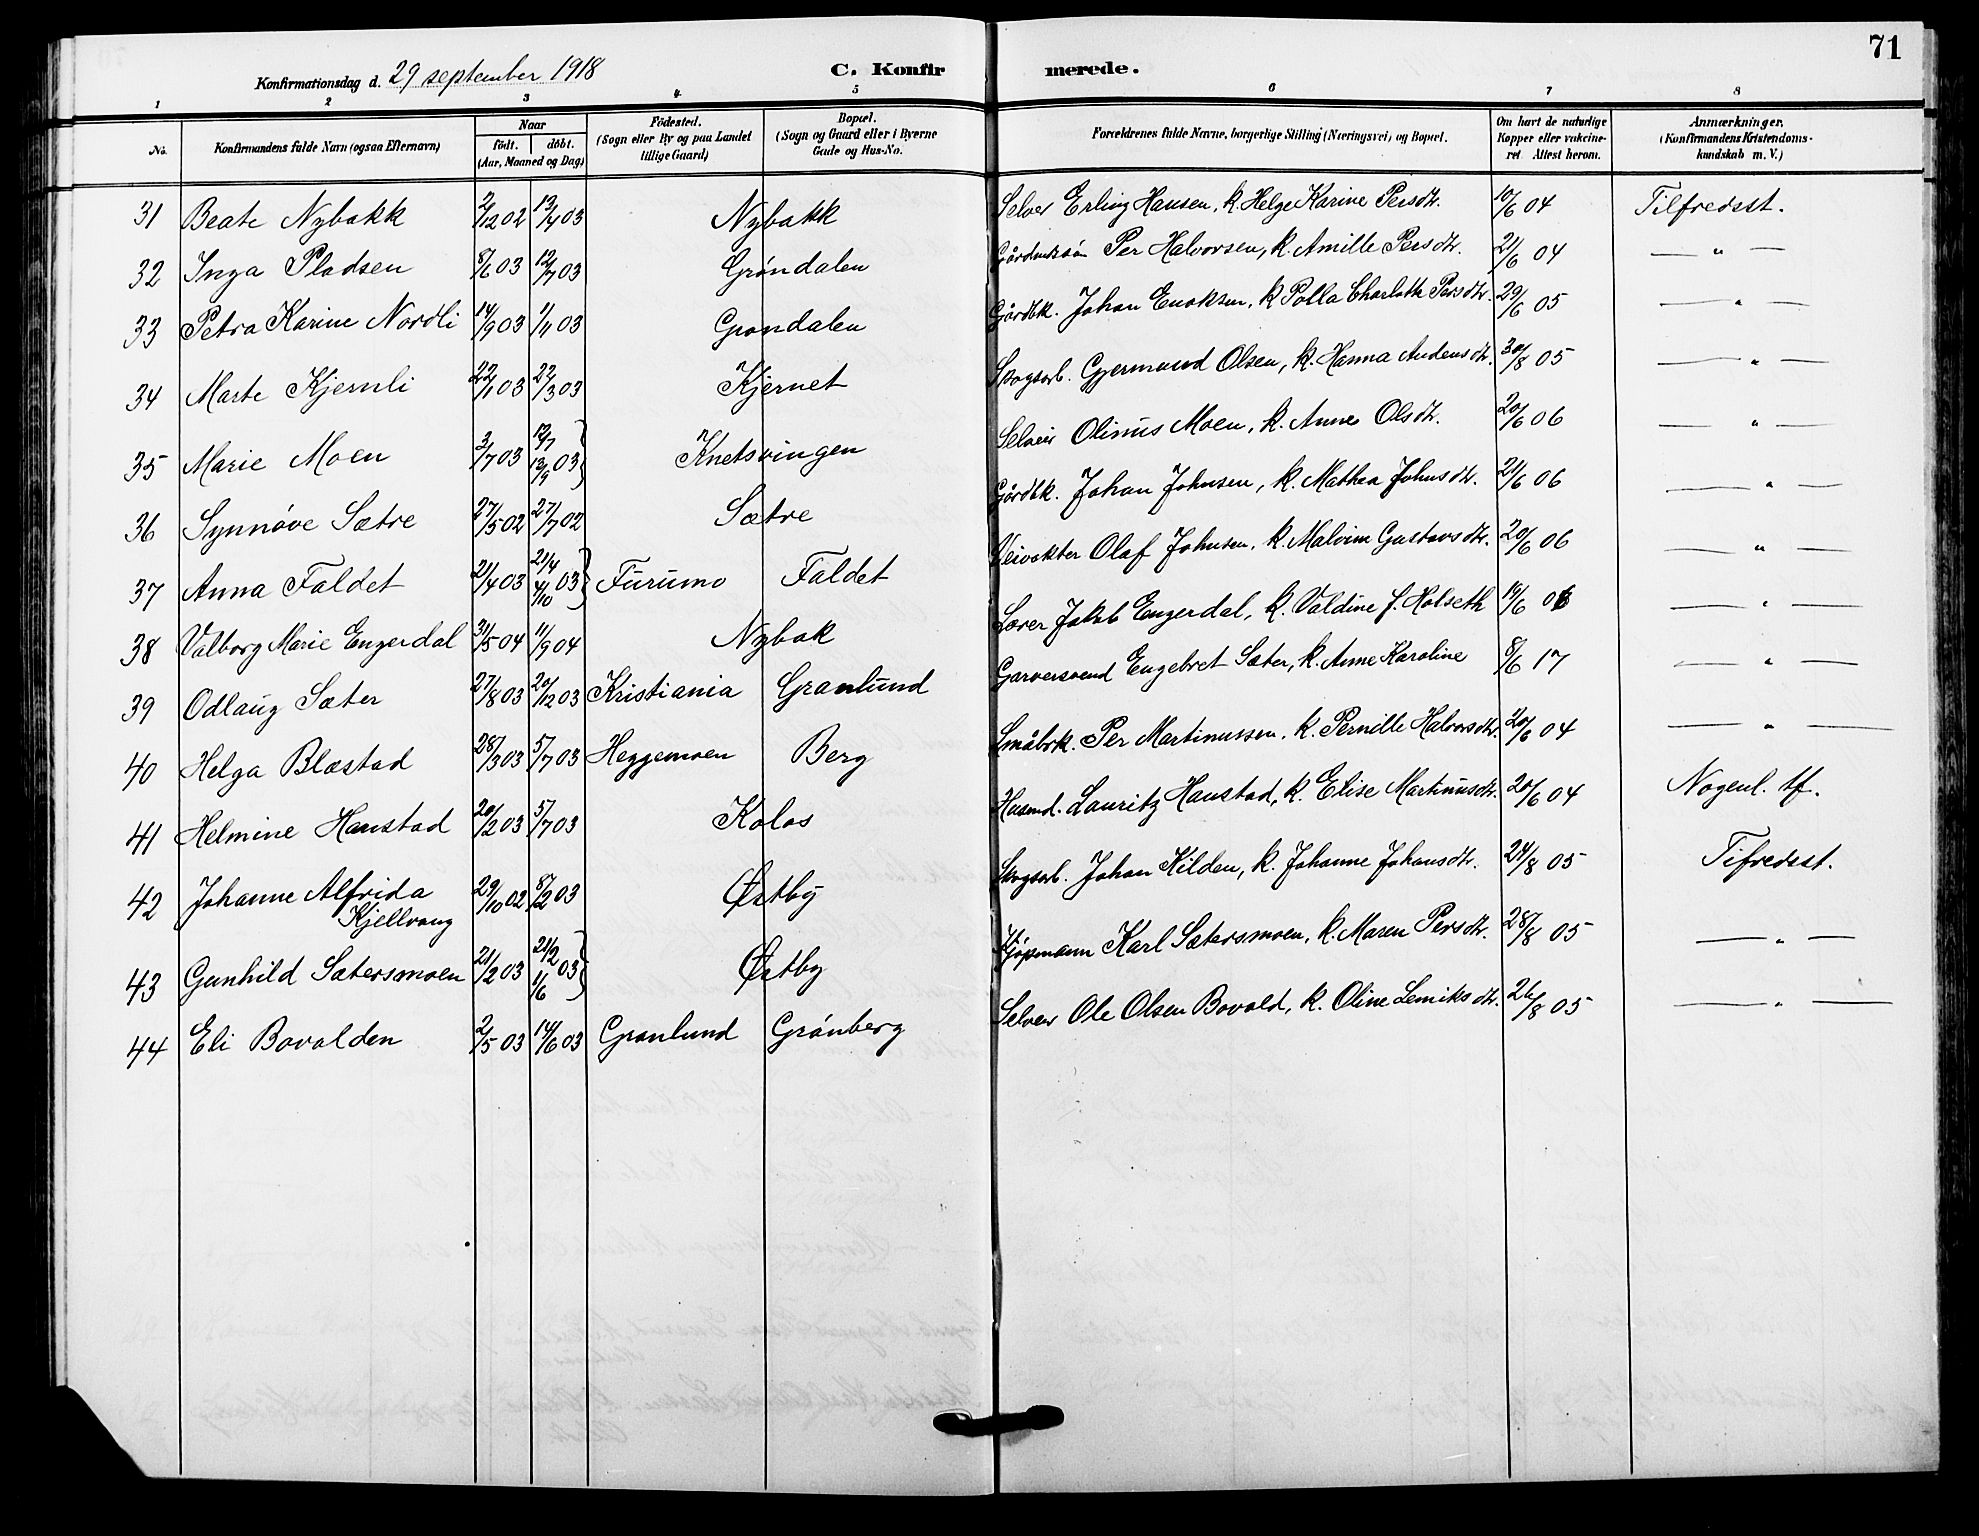 71
Konfirmationsdag d. 29 september 1918
C. Konfir merede.
1 2 3 4 5 6 7 8
No. | Konfirmandens fulde Navn (ogsaa Efternavn) | Naar födt. döbt. (Aar, Maaned og Dag) | Födested. (Sogn eller By og paa Landet tillige Gaard) | Bopæl. (Sogn og Gaard eller i Byerne Gade og Hus-No. | Forældrenes fulde Navne, borgerlige Stilling (Næringsvei) og Bopæl. | Om havt de naturlige Kopper eller vakcineret Attest herom. | Anmærkninger. (Konfirmandens Kristendomskundskab m. V.)
31 Beate Nybakk 2/12 02 13/4 03 Nybakk Selvei Erling Hansen, k. Helge Karine Persdtr. 10/6 04 Tilfredsst.
32 Inga Pladsen 8/6 03 12/7 03 Gröndalen Per Halvorsen, k. Amille Persdtr. 21/6 04 — " —
33 Petra Karine Nordli 14/9 03 1/11 03 Grondalen Gårdbk. Johan Enoksen, k. Polla Charlotte Persdtr. 29/6 05 — " —
34 Marte Kjernli 22/1 03 22/3 03 Kjernet Skogsarb. Gjermund Olsen, k. Hanna Audensdtr. 30/8 05 — " —
35 Marie Moen 3/7 03 12/7 13/9 03 Knetsvingen Selveir Olinus Moen, k. Anne Olsdtr. 20/6 06 — " —
36 Synnöve Sætre 27/5 02 27/7 02 Sætre Gårdbk. Johan Johnsen, k. Mathea Johnsdtr. 21/6 06 — " —
37 Anna Faldet 21/4 03 21/4 4/10 03 Furumo Faldet Veivokter Olaf Johnsen, k. Malvine Gustavsdtr. 20/6 06 — " —
38 Valborg Marie Engerdal 31/5 04 11/9 04 Nybak Lærer Jakob Engerdal, k. Valdine f. Holseth 19/6 06 — " —
39 Odlaug Sæter 27/8 03 20/12 03 Kristiania Granlund Garversvend Engebret Sæter, k. Anne Karoline 8/6 17 — " —
40 Helga Blæstad 28/3 03 5/7 03 Heggemoen Berg Småbrk. Per Martinussen, k. Pernille Halvorsdtr. 20/6 04 — " —
41 Helmine Hanstad 20/2 03 5/7 03 Kolos Husmd. Lauritz Hanstad, k. Elise Martinusdtr. 20/6 04 Nogenl. tf.
42 Johanne Alfrida Kjellvang 29/10 02 8/2 03 Østby Skogsarb. Johan Kilden, k. Johanne Johansdtr. 24/8 05 Tifredsst.
43 Gunhild Sætersmoen 21/2 03 21/2 1/6 03 Østby Kjöpmann Karl Sætersmoen, k. Maren Persdtr. 28/8 05 — " —
44 Eli Bovalden 2/5 03 14/6 03 Granlund Grönberg Selveir Ole Olsen Bovald, k. Oline Lemiksdtr. 26/8 05 — " —